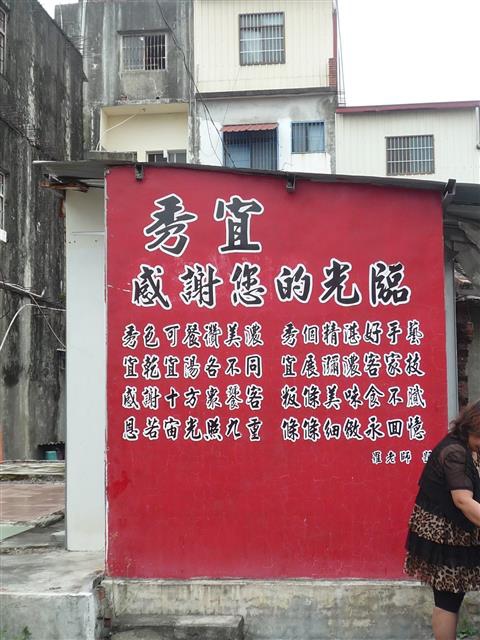 秀宜
感謝您的光臨
秀色可餐攢美濃 秀個精湛好手藝
宜乾宜陽各不同 宜展瀰濃客家技
感謝十方衆饗客 粄條美味食不膩
恩若宙光照九重 條條細做永回憶
羅老師